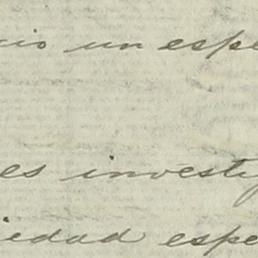 cio un espe
es investig
iedad espe